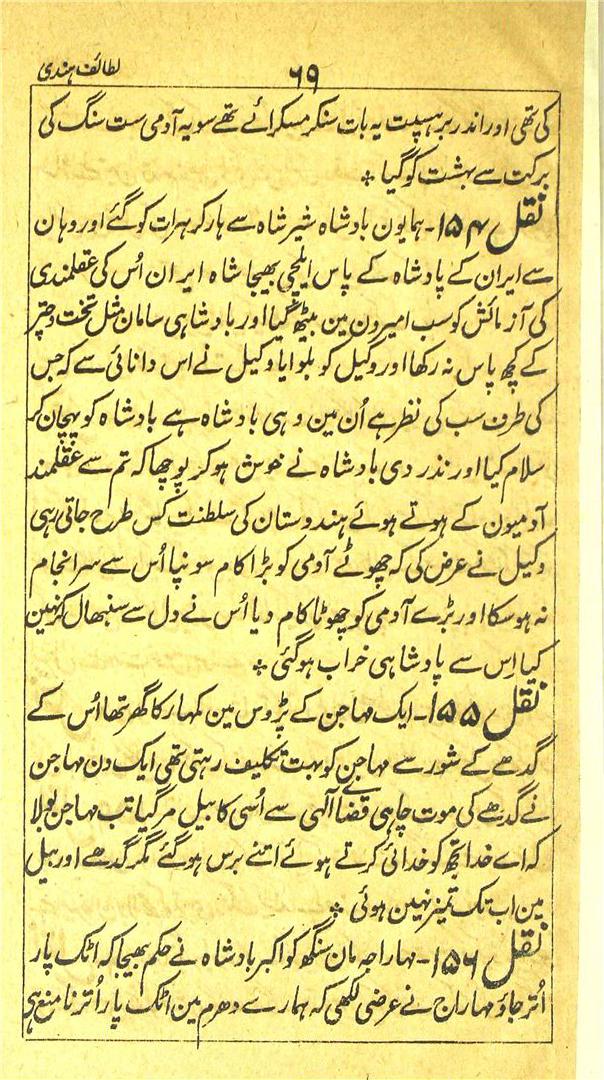 ۶۹ لطائف ہندی
کی تھی اور اندر برہسپت یہ بات سنکر مسکرائے تھے سو یہ آدمی ست سنگ کی
برکت سے بہشت کو گیا ٭
نقل ۱۵۴۔ ہمایون بادشاہ شیر شاہ سے ہار کر ہرات کو گئے اور وہان
سے ایران کے پادشاہ کے پاس ایلچی بھیجا شاہ ایران اُس کی عقلمندی
کی آزمائش کو سب امیرون مین بیٹھ گیا اور بادشاہی سامان مثل تخت و چتر
کے کچھ پاس نہ رکھا اور وکیل کو بلوایا وکیل نے اس دانائی سے کہ جس
کی طرف سب کی نظر ہے اُن مین وہی بادشاہ ہے بادشاہ کو پہچان کر
سلام کیا اور نذر دی بادشاہ نے خوش ہوکر پوچھا کہ تم سے عقلمند
آدمیون کے ہوتے ہوئے ہندوستان کی سلطنت کس طرح جاتی رہی
وکیل نے عرض کی کہ چھوٹے آدمی کو بڑا کام سونپا اُس سے سرانجام
نہ ہوسکا اور بڑے آدمی کو چھوٹا کام دیا اُس نے دل سے سنبھال کر نہین
کیا اِس سے پادشاہی خراب ہوگئی ٭
نقل ۱۵۵۔ ایک مہاجن کے پڑوس مین کمہار کا گھر تھا اُس کے
گدھے کے شور سے مہاجن کو بہت تکلیف رہتی تھی ایک دن مہاجن
نے گدھے کی موت چاہی قضائے الٰہی سے اُسی کا بیل مر گیا تب مہاجن بولا
کہ اے خدا تجھ کو خدائی کرتے ہوئے اتنے برس ہوگئے مگر گدھے اور بیل
مین اب تک تمیز نہین ہوئی ٭
نقل ۱۵۶۔ مہاراجہ مان سنگھ کو اکبر بادشاہ نے حکم بھیجا کہ اٹک پار
اُتر جاؤ مہاراج نے عرضی لکھی کہ ہمارے دھرم مین اٹک پار اُترنا منع ہی